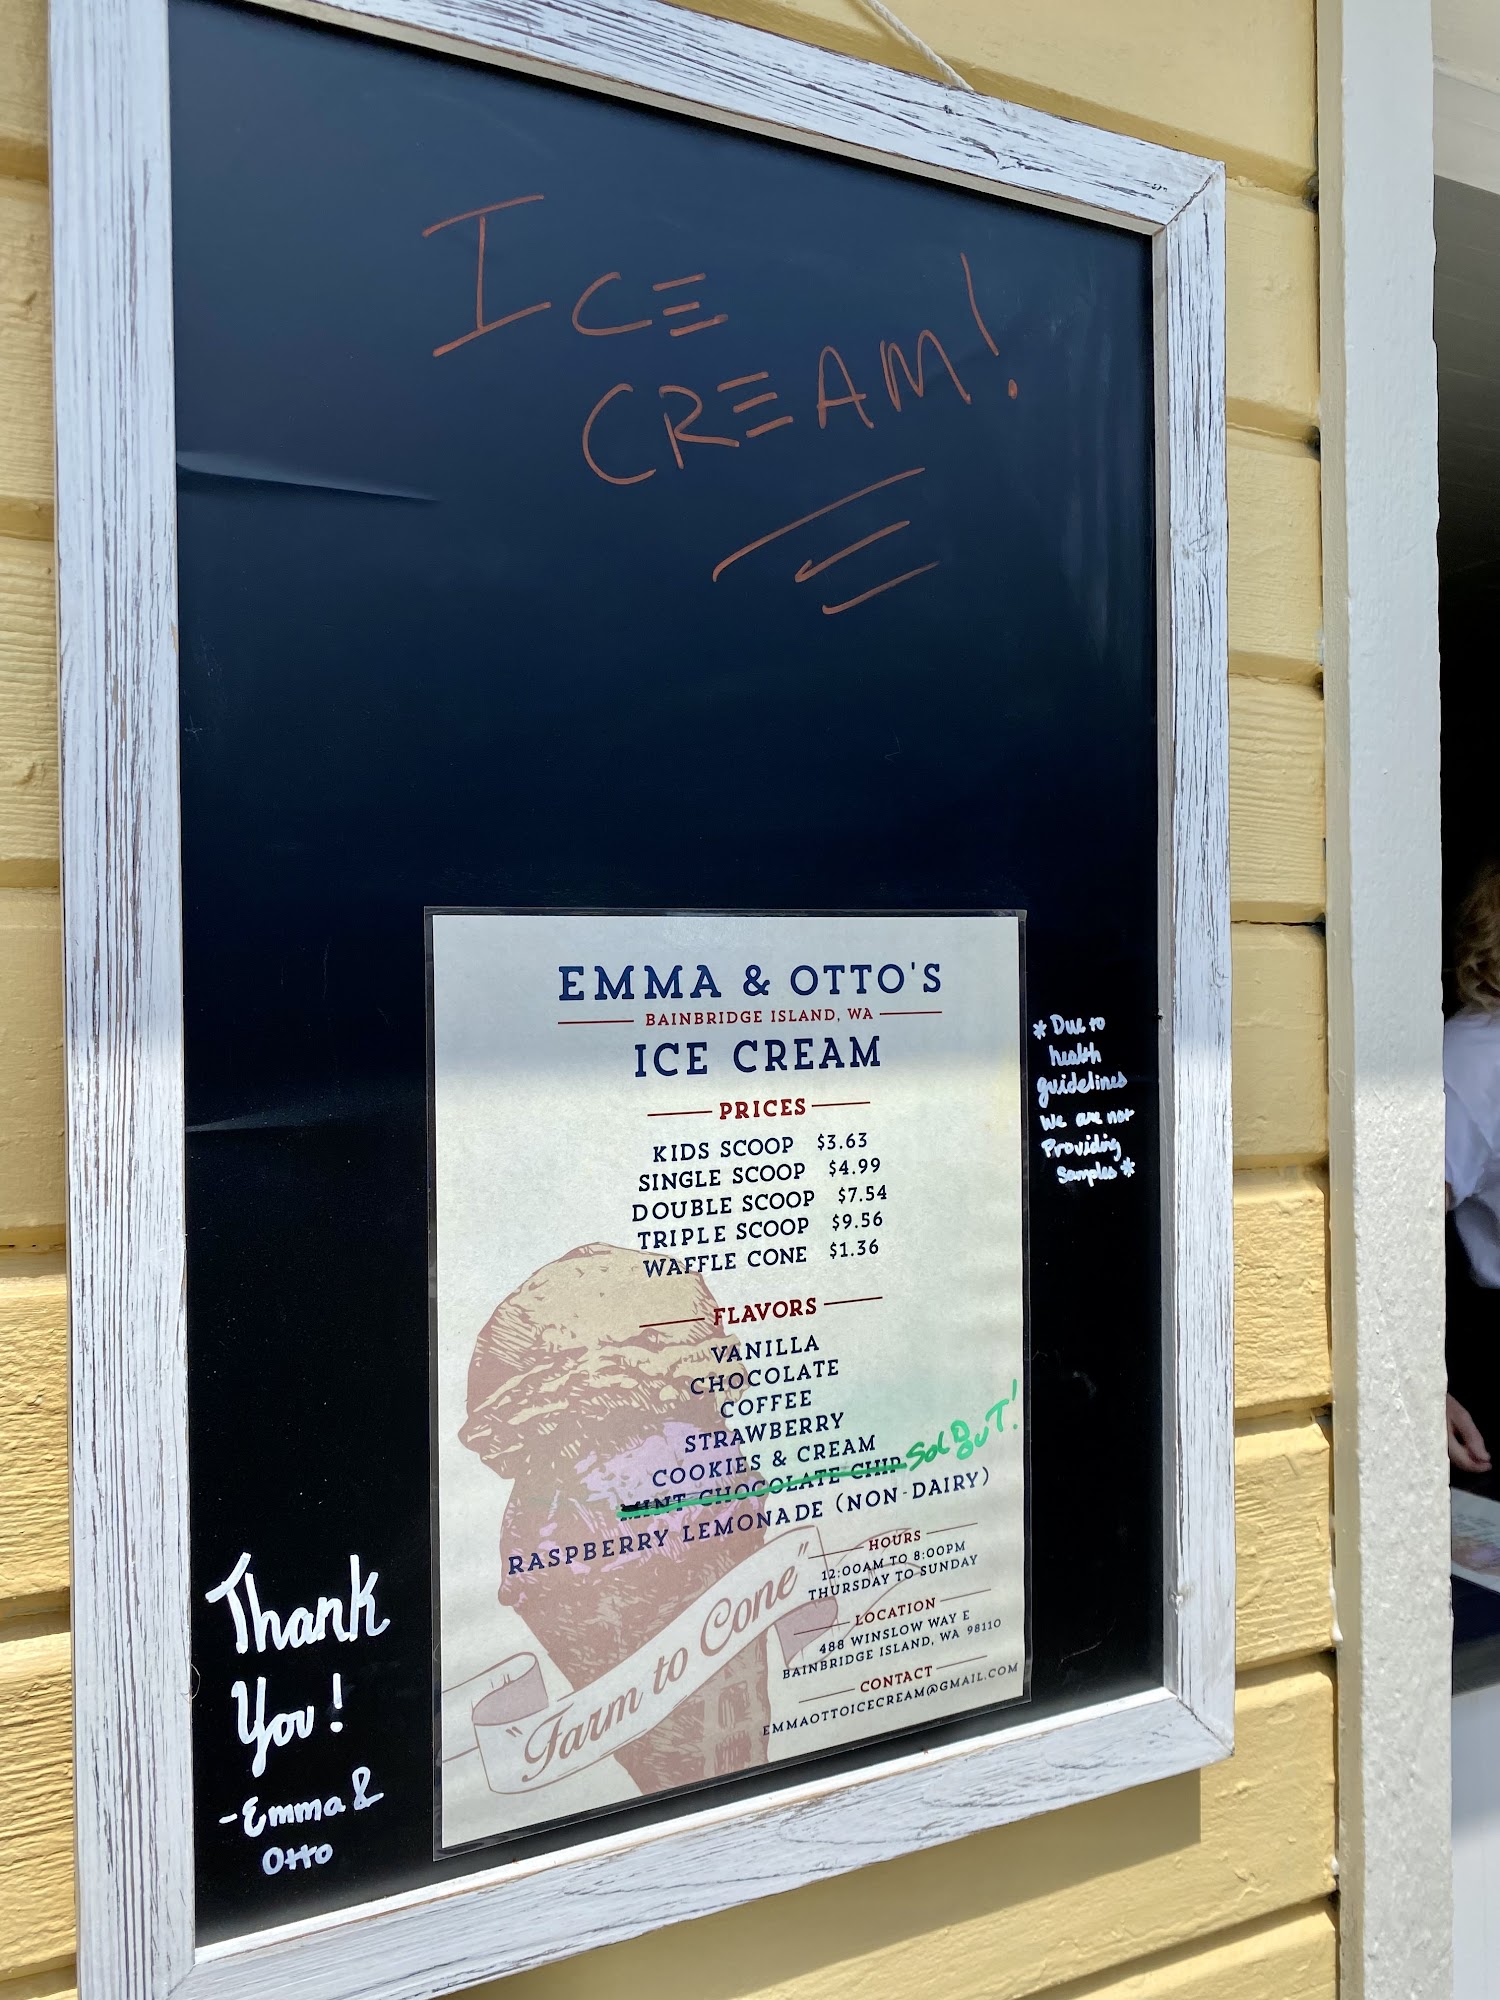 ICE
CREAM!
EMMA & OTTO'S
BAINBRIDGE ISLAND, WA
ICE CREAM
PRICES
KIDS SCOOP $3.63
SINGLE SCOOP $4.99
DOUBLE SCOOP $7.54
TRIPLE SCOOP $9.56
WAFFLE CONE $1.36
FLAVORS
VANILLA
CHOCOLATE
COFFEE
STRAWBERRY
COOKIES & CREAM
MINT CHOCOLATE CHIP SOLD OUT!
RASPBERRY LEMONADE (NON-DAIRY)
HOURS
12:00AM TO 8:00PM
THURSDAY TO SUNDAY
LOCATION
488 WINSLOW WAY E
BAINBRIDGE ISLAND, WA 98110
CONTACT
EMMAOTTOICECREAM@GMAIL.COM
"Farm to Cone"
* Due to
health
guidelines
We are not
Providing
Samples *
Thank
You!
-Emma &
Otto